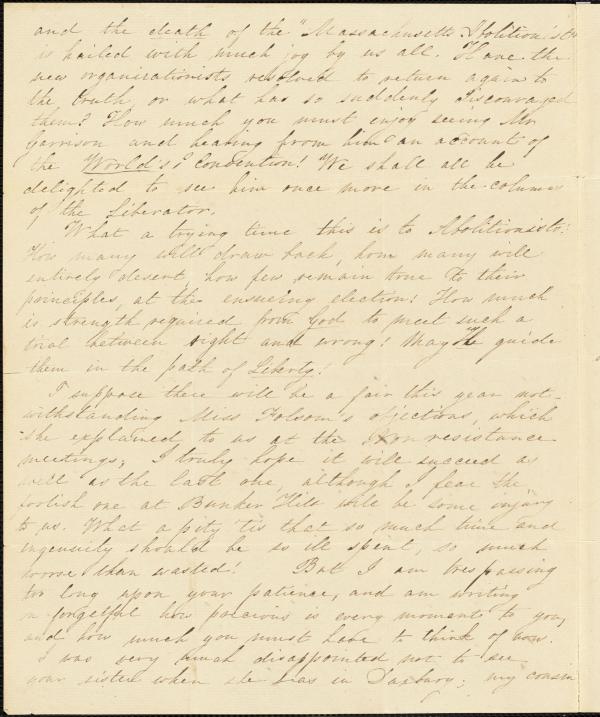 and the death of the "Massachusetts Abolitionist"
is hailed with much joy by us all. Have the
new organizationists resolved to return again to
the truth, or what has so suddenly discouraged
them? How much you must enjoy seeing Mr
Garrison and hearing from him an account of
the World's? Convention! We shall all be
delighted to see him once more in the columns
of the Liberator.
What a trying time this is to Abolitionists:
How many will draw back, how many will
entirely desert, how few remain true to their
principles, at the ensueing election! How much
is strength required from God to meet such a
trial between right and wrong! May He guide
them in the path of Liberty!
I suppose there will be a fair this year not-
withstanding Miss Folsom's objections, which
she explained to us at the Non resistance
meetings; I truly hope it will succeed as
well as the last one, although I fear the
foolish one at Bunker Hill will be some injury
to us. What a pity 'tis that so much time and
ingenuity should be so ill spent, so much
worse than wasted! But I am trespassing
too long upon your patience, and am writing
on forgetful how precious is every moment to you,
and how much you must have to think of now.
I was very much disappointed not to see
your sister when she was in Duxbury; my cousin